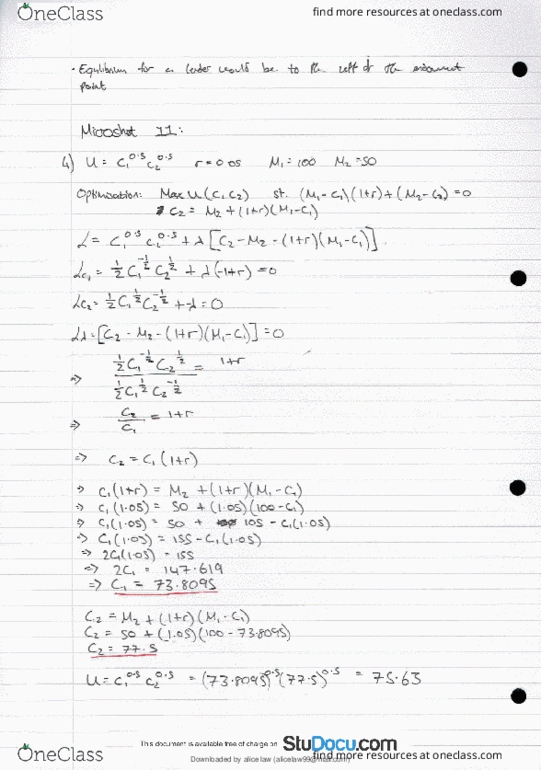 OneClass
find more resources at oneclass.com
• Equilibrium for a lender would be to the left of the endowment
point
Microshot 11:
4) U = C₁^0.5 C₂^0.5 r = 0.05 M₁ = 100 M₂ = 50
Optimisation: Max U(C₁C₂) st. (M₁-C₁)(1+r)+(M₂-C₂)=0
C₂ = M₂ + (1+r)(M₁-C₁)
L = C₁^0.5 C₂^0.5 + λ[C₂-M₂-(1+r)(M₁-C₁)]
L_C₁ = 1/2 C₁^-1/2 C₂^1/2 + λ(-1+r) = 0
L_C₂ = 1/2 C₁^1/2 C₂^-1/2 + -λ = 0
Lλ = [C₂ - M₂ - (1+r)(M₁-C₁)] = 0
⇒ (1/2 C₁^-1/2 C₂^1/2) / (1/2 C₁^1/2 C₂^-1/2) = 1+r
⇒ C₂/C₁ = 1+r
⇒ C₂ = C₁(1+r)
⇒ C₁(1+r) = M₂ + (1+r)(M₁-C₁)
⇒ C₁(1.05) = 50 + (1.05)(100-C₁)
⇒ C₁(1.05) = 50 + 105 - C₁(1.05)
⇒ C₁(1.05) = 155 - C₁(1.05)
⇒ 2C₁(1.05) = 155
⇒ 2C₁ = 147.619
⇒ C₁ = 73.8095
C₂ = M₂ + (1+r)(M₁-C₁)
C₂ = 50 + (1.05)(100-73.8095)
C₂ = 77.5
U = C₁^0.5 C₂^0.5 = (73.8095)^0.5 (77.5)^0.5 = 75.63
This document is available free of charge on StuDocu.com
OneClass
Downloaded by alice law (alicelaw99@mail.com)
find more resources at oneclass.com